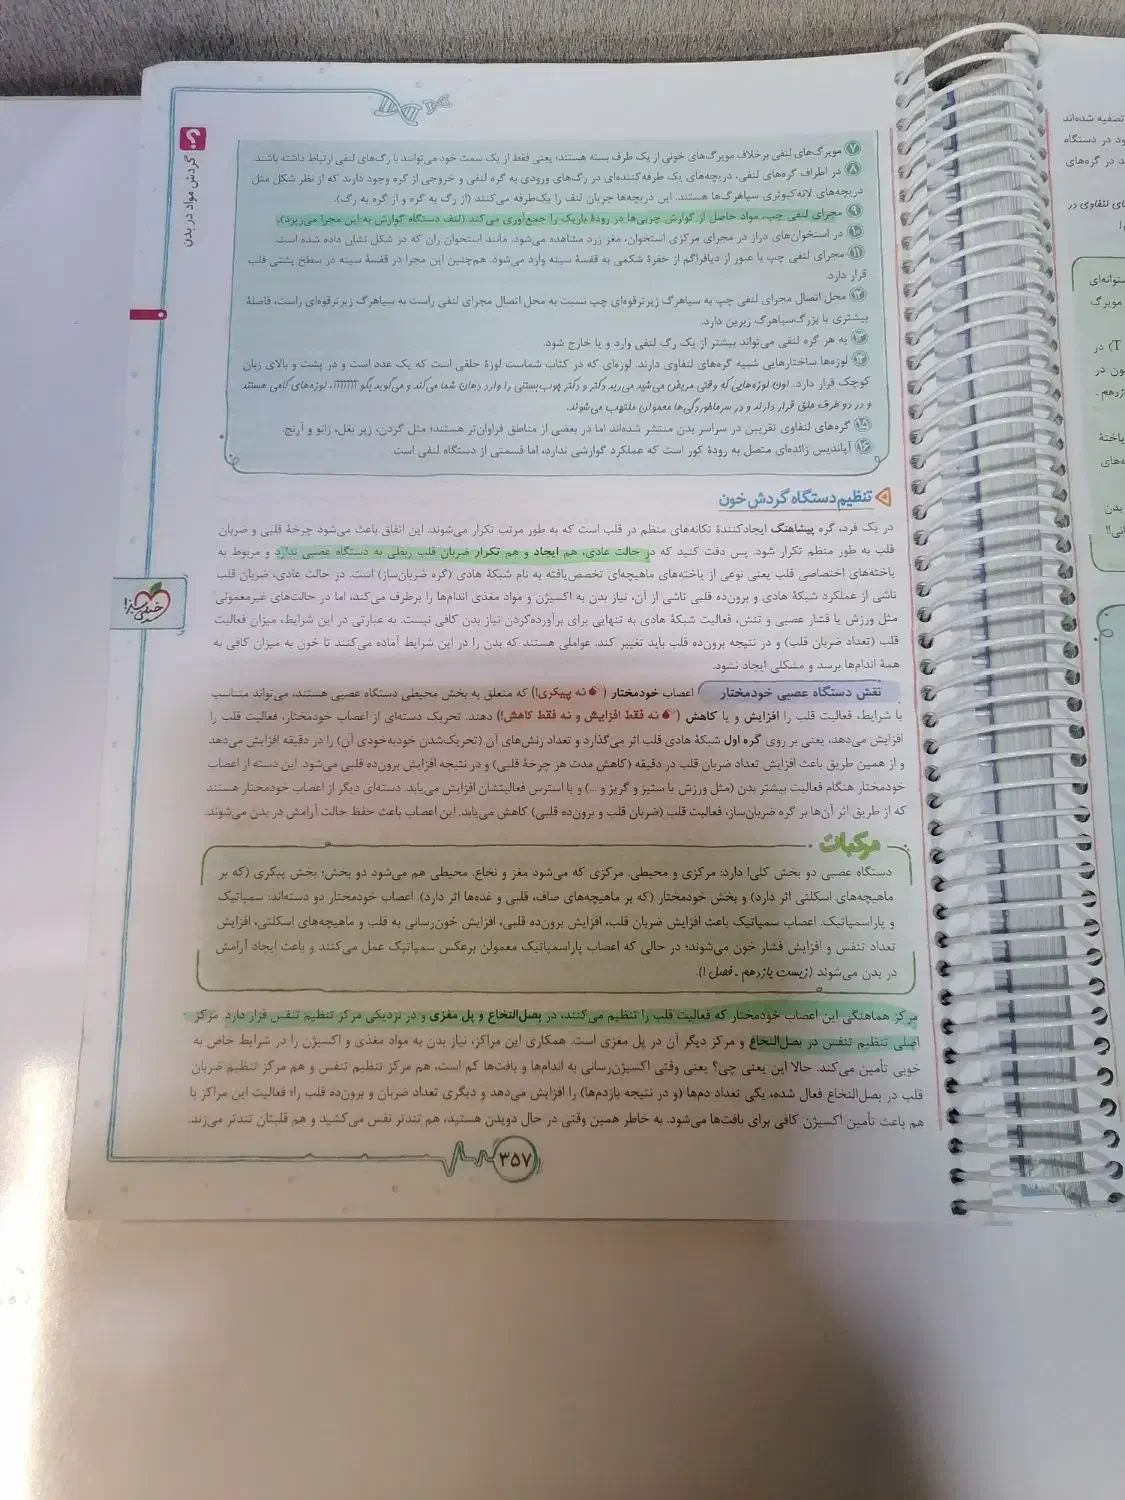 گردش مواد در بدن
۷ مویرگ‌های لنفی برخلاف مویرگ‌های خونی از یک طرف بسته هستند؛ یعنی فقط از یک سمت خود می‌توانند با رگ‌های لنفی ارتباط داشته باشند.
۸ در اطراف گره‌های لنفی، دریچه‌های یک طرفه‌کننده‌ای در رگ‌های ورودی به گره لنفی و خروجی از گره وجود دارند که از نظر شکل مثل
دریچه‌های لانه‌کبوتری سیاهرگ‌ها هستند. این دریچه‌ها جریان لنف را یک‌طرفه می‌کنند (از رگ به گره و از گره به رگ).
۹ مجرای لنفی چپ، مواد حاصل از گوارش چربی‌ها در رودهٔ باریک را جمع‌آوری می‌کند (لنف دستگاه گوارش به این مجرا می‌ریزد).
۱۰ در استخوان‌های دراز در مجرای مرکزی استخوان، مغز زرد مشاهده می‌شود. مانند استخوان ران که در شکل نشان داده شده است.
۱۱ مجرای لنفی چپ با عبور از دیافراگم از حفرهٔ شکمی به قفسهٔ سینه وارد می‌شود. هم‌چنین این مجرا در قفسهٔ سینه در سطح پشتی قلب
قرار دارد.
۱۲ محل اتصال مجرای لنفی چپ به سیاهرگ زیرترقوه‌ای چپ نسبت به محل اتصال مجرای لنفی راست به سیاهرگ زیرترقوه‌ای راست، فاصلهٔ
بیشتری با بزرگ‌سیاهرگ زبرین دارد.
۱۳ به هر گره لنفی می‌تواند بیشتر از یک رگ لنفی وارد و یا خارج شود.
۱۴ لوزه‌ها ساختارهایی شبیه گره‌های لنفاوی دارند. لوزه‌ای که در کتاب شماست لوزهٔ حلقی است که یک عدد است و در پشت و بالای زبان
کوچک قرار دارد. اون لوزه‌هایی که وقتی مریض می‌شید می‌رید دکتر و دکتر چوب بستنی را وارد دهان شما می‌کند و می‌گوید بگو آآآآآآآ، لوزه‌های کامی هستند
و در دو طرف حلق قرار دارند و در سرماخوردگی‌ها معمولن ملتهب می‌شوند.
۱۵ گره‌های لنفاوی تقریبن در سراسر بدن منتشر شده‌اند اما در بعضی از مناطق فراوان‌تر هستند؛ مثل گردن، زیر بغل، زانو و آرنج.
۱۶ آپاندیس زائده‌ای متصل به رودهٔ کور است که عملکرد گوارشی ندارد، اما قسمتی از دستگاه لنفی است.
تنظیم دستگاه گردش خون
در یک فرد، گره پیشاهنگ ایجادکنندهٔ تکانه‌های منظم در قلب است که به طور مرتب تکرار می‌شوند. این اتفاق باعث می‌شود چرخهٔ قلبی و ضربان
قلب به طور منظم تکرار شود. پس دقت کنید که در حالت عادی، هم ایجاد و هم تکرار ضربان قلب ربطی به دستگاه عصبی ندارد و مربوط به
یاخته‌های اختصاصی قلب یعنی نوعی از یاخته‌های ماهیچه‌ای تخصص‌یافته به نام شبکهٔ هادی (گره ضربان‌ساز) است. در حالت عادی، ضربان قلب
ناشی از عملکرد شبکهٔ هادی و برون‌ده قلبی ناشی از آن، نیاز بدن به اکسیژن و مواد مغذی اندام‌ها را برطرف می‌کند، اما در حالت‌های غیرمعمولی
مثل ورزش یا فشار عصبی و تنش، فعالیت شبکهٔ هادی به تنهایی برای برآورده‌کردن نیاز بدن کافی نیست. به عبارتی در این شرایط، میزان فعالیت
قلب (تعداد ضربان قلب) و در نتیجه برون‌ده قلب باید تغییر کند. عواملی هستند که بدن را در این شرایط آماده می‌کنند تا خون به میزان کافی به
همهٔ اندام‌ها برسد و مشکلی ایجاد نشود.
نقش دستگاه عصبی خودمختار اعصاب خودمختار (نه پیکری!) که متعلق به بخش محیطی دستگاه عصبی هستند، می‌تواند متناسب
با شرایط، فعالیت قلب را افزایش و یا کاهش (نه فقط افزایش و نه فقط کاهش!) دهند. تحریک دسته‌ای از اعصاب خودمختار، فعالیت قلب را
افزایش می‌دهد، یعنی بر روی گره اول شبکهٔ هادی قلب اثر می‌گذارد و تعداد زنش‌های آن (تحریک‌شدن خودبه‌خودی آن) را در دقیقه افزایش می‌دهد
و از همین طریق باعث افزایش تعداد ضربان قلب در دقیقه (کاهش مدت هر چرخهٔ قلبی) و در نتیجه افزایش برون‌ده قلبی می‌شود. این دسته از اعصاب
خودمختار هنگام فعالیت بیشتر بدن (مثل ورزش یا ستیز و گریز و ...) و یا استرس فعالیتشان افزایش می‌یابد. دسته‌ای دیگر از اعصاب خودمختار هستند
که از طریق اثر آن‌ها بر گره ضربان‌ساز، فعالیت قلب (ضربان قلب و برون‌ده قلبی) کاهش می‌یابد. این اعصاب باعث حفظ حالت آرامش در بدن می‌شوند.
مرکبات
دستگاه عصبی دو بخش کلی! دارد: مرکزی و محیطی. مرکزی که می‌شود مغز و نخاع. محیطی هم می‌شود دو بخش؛ بخش پیکری (که بر
ماهیچه‌های اسکلتی اثر دارد) و بخش خودمختار (که بر ماهیچه‌های صاف، قلبی و غده‌ها اثر دارد). اعصاب خودمختار دو دسته‌اند: سمپاتیک
و پاراسمپاتیک. اعصاب سمپاتیک باعث افزایش ضربان قلب، افزایش برون‌ده قلبی، افزایش خون‌رسانی به قلب و ماهیچه‌های اسکلتی، افزایش
تعداد تنفس و افزایش فشار خون می‌شوند؛ در حالی که اعصاب پاراسمپاتیک معمولن برعکس سمپاتیک عمل می‌کنند و باعث ایجاد آرامش
در بدن می‌شوند (زیست یازدهم ـ فصل ۱).
مرکز هماهنگی این اعصاب خودمختار که فعالیت قلب را تنظیم می‌کنند، در بصل‌النخاع و پل مغزی و در نزدیکی مرکز تنظیم تنفس قرار دارد. مرکز
اصلی تنظیم تنفس در بصل‌النخاع و مرکز دیگر آن در پل مغزی است. همکاری این مراکز، نیاز بدن به مواد مغذی و اکسیژن را در شرایط خاص به
خوبی تأمین می‌کند. حالا این یعنی چی؟ یعنی وقتی اکسیژن‌رسانی به اندام‌ها و بافت‌ها کم است، هم مرکز تنظیم تنفس و هم مرکز تنظیم ضربان
قلب در بصل‌النخاع فعال شده، یکی تعداد دم‌ها (و در نتیجه بازدم‌ها) را افزایش می‌دهد و دیگری تعداد ضربان و برون‌ده قلب را؛ فعالیت این مراکز با
هم باعث تأمین اکسیژن کافی برای بافت‌ها می‌شود. به خاطر همین وقتی در حال دویدن هستید، هم تندتر نفس می‌کشید و هم قلبتان تندتر می‌زند.
۳۵۷
خیلی سبز
تصفیه شده‌اند
ود در دستگاه
ند در گره‌های
های لنفاوی در
ستوانه‌ای
مویرگ
T) در
ون در
زدهم ـ
یاختهٔ
ه‌های
بدن